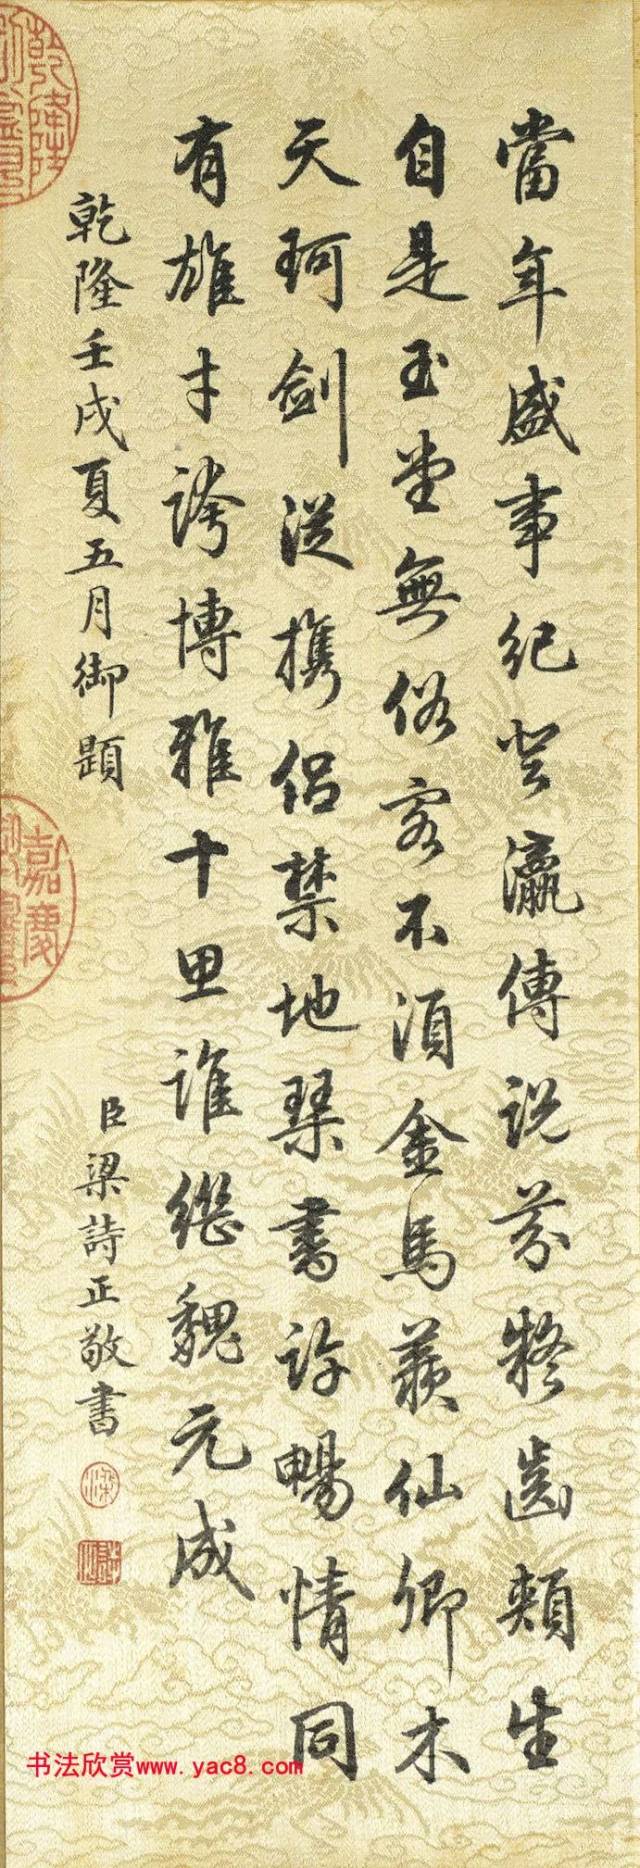 當年盛事紀登瀛傳說芬擬齒頰生
自是玉堂無俗客不須金馬羨仙卿木
天珂劍從携侶禁地琴書許暢情同
有雄才誇博雅十思誰繼魏元成
乾隆壬戌夏五月御題
臣梁詩正敬書
乾隆
嘉慶
书法欣赏www.yac8.com